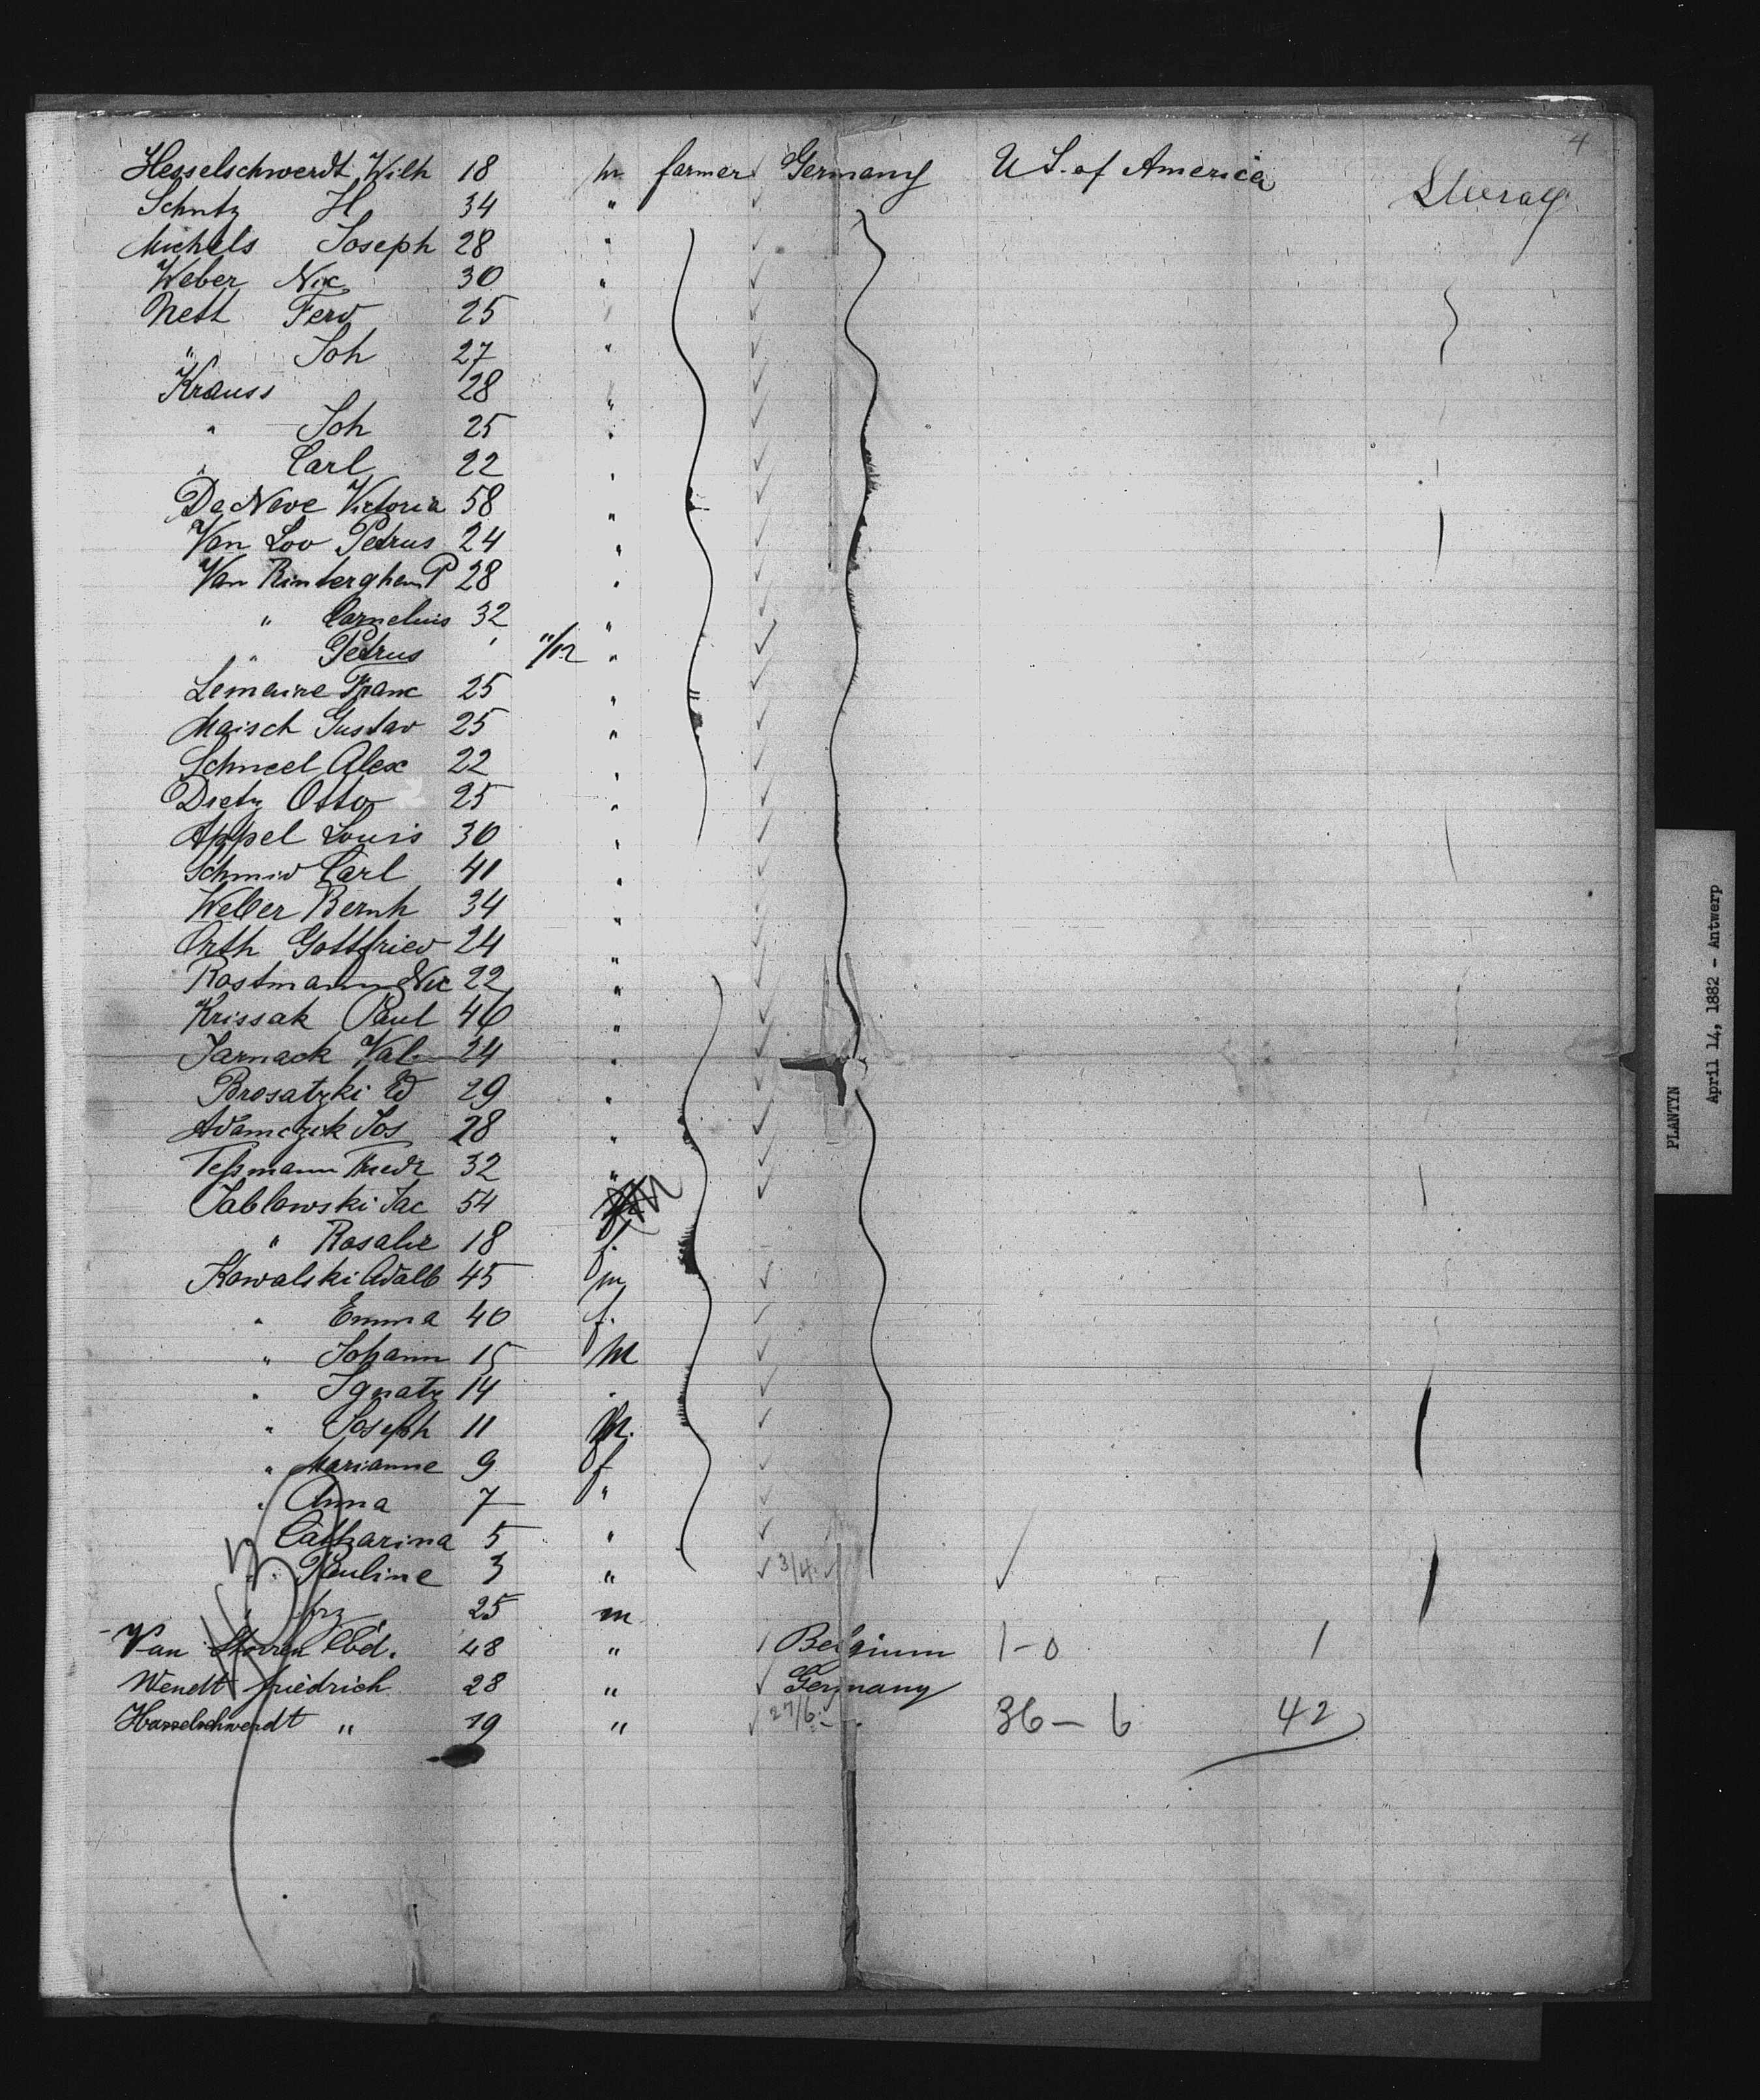 4
Hesselschwerdt Wilh 18 m farmer Germany U S. of America Steerage
Schutz H 34 "
Michels Joseph 28 "
Weber Nic 30 "
Nett Ferd 25 "
" Joh 27 "
Krauss 28 "
" Joh 25 "
" Carl 22 "
De Neve Victoria 58 "
Van Loo Petrus 24 "
Van Rinterghem P 28 "
" Cornelius 32 "
" Petrus " 11/12 "
Lemaire Franc 25 "
Maisch Gustav 25 "
Schneel Alex 22 "
Dietz Otto 25 "
Appel Louis 30 "
Schmid Carl 41 "
Weber Bernh 34 "
Orth Gottfried 24 "
Rostmann Nic 22 "
Krissak Paul 46 "
Jarnack Val 24 "
Brosatzki Ed 29 "
Adamczik Jos 28 "
Teßmann Friedr 32 "
Jablowski Jac 54
" Rosalie 18 f.
Kowalski Adalb 45 m
" Emma 40 f.
" Johann 15 m
" Ignatz 14 "
" Joseph 11 m.
" Marianne 9 f
" Anna 7 "
Catharina 5 "
" Pauline 3 " 3/4
" frz 25 m
Van Ed. 48 " Belgium 1-0 1
Wendt friedrich 28 " Germany
Hasselschwerdt " 19 " 27/6 36-6 42
PLANTYN
April 14, 1882 - Antwerp